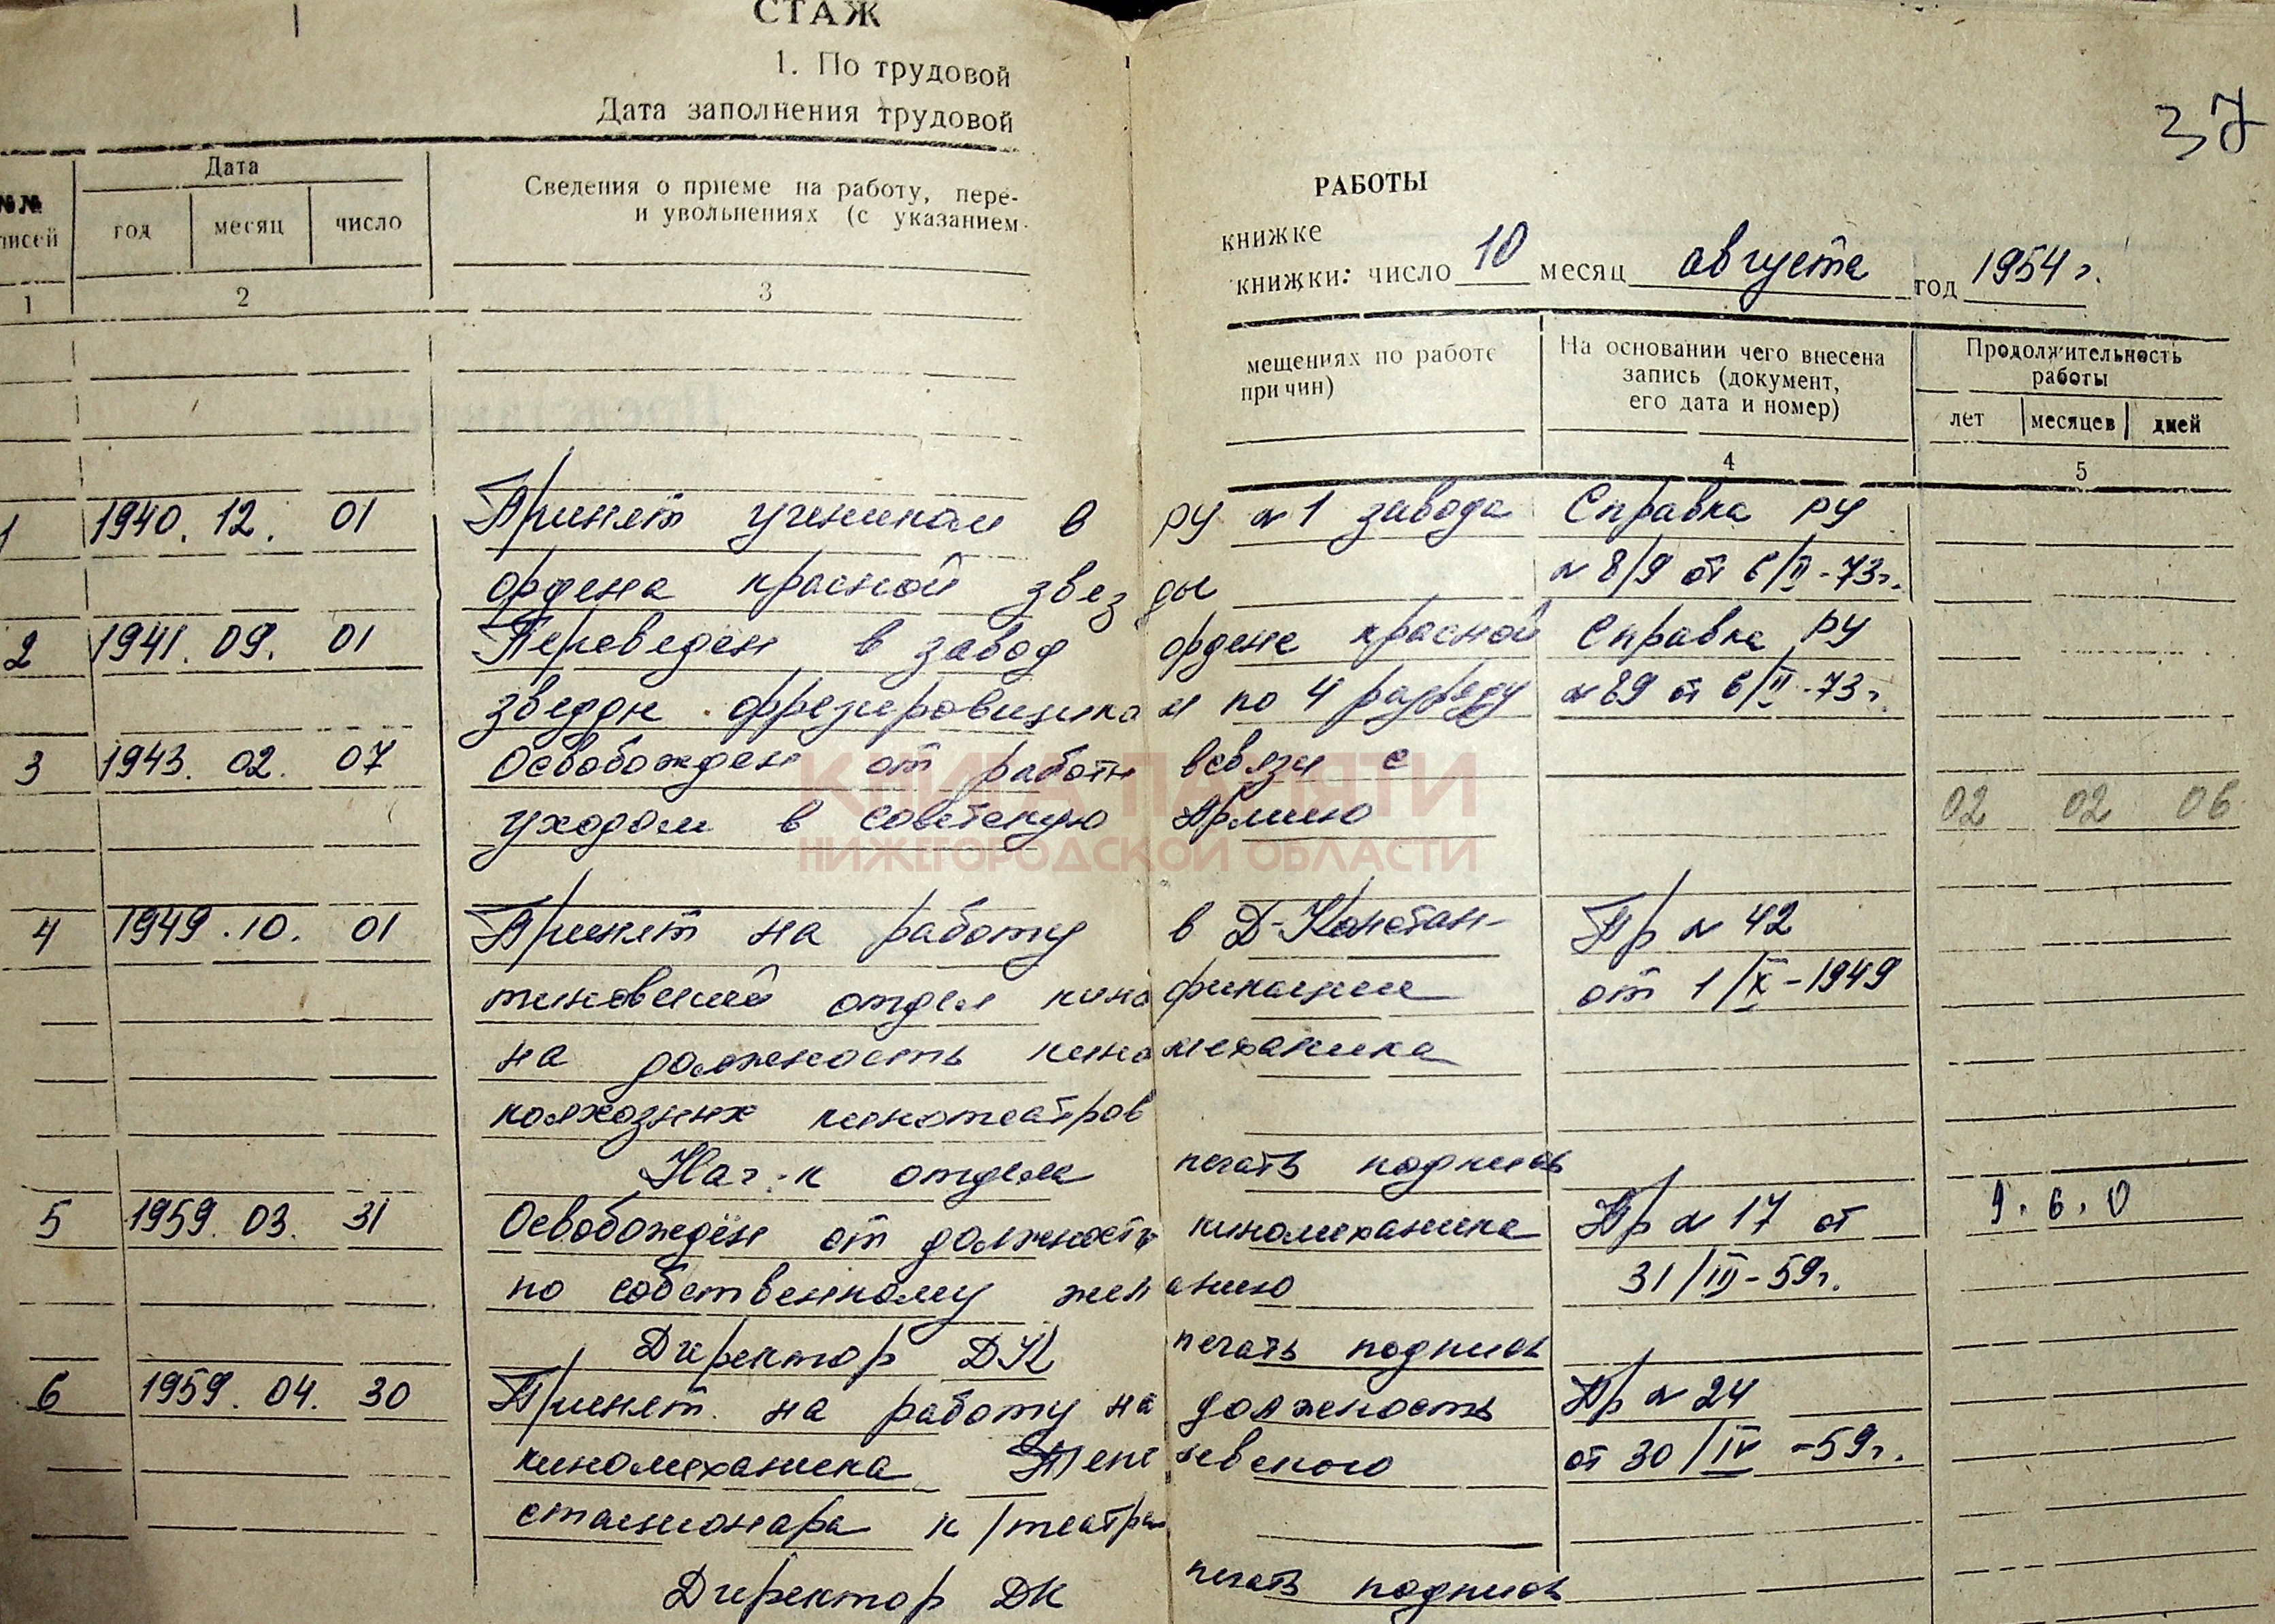 37
СТАЖ РАБОТЫ
1. По трудовой книжке
Дата заполнения трудовой книжки: число 10 месяц августа год 1954 г.
№№ писей
Дата
год месяц число
Сведения о приеме на работу, пере- мещениях по работе
и увольнениях (с указанием причин)
На основании чего внесена
запись (документ,
его дата и номер)
Продолжительность
работы
лет месяцев дней
1 2 3 4 5
1 1940. 12. 01 Принят учеником в РУ №1 завода Справка РУ
ордена красной звезды №8/9 от 6/II-73г.
2 1941. 09. 01 Переведен в завод ордена красной Справка РУ
звезды фрезеровщиком по 4 разряду №89 от 6/II-73г.
3 1943. 02. 07 Освобожден от работы всвязи с
уходом в советскую Армию 02 02 06
КНИГА ПАМЯТИ
НИЖЕГОРОДСКОЙ ОБЛАСТИ
4 1949. 10. 01 Принят на работу в Д-Констан- Пр №42
тиновский отдел кинофикации от 1/X-1949
на должность киномеханика
колхозных кинотеатров
Нач-к отдела печать подпись
5 1959. 03. 31 Освобождён от должности киномеханика Пр №17 от 9. 6. 0
по собственному желанию 31/III-59г.
Директор ДК печать подпись
6 1959. 04. 30 Принят на работу на должность Пр №24
киномеханика от 30/IV-59г.
стационара к/театра
Директор ДК печать подпись